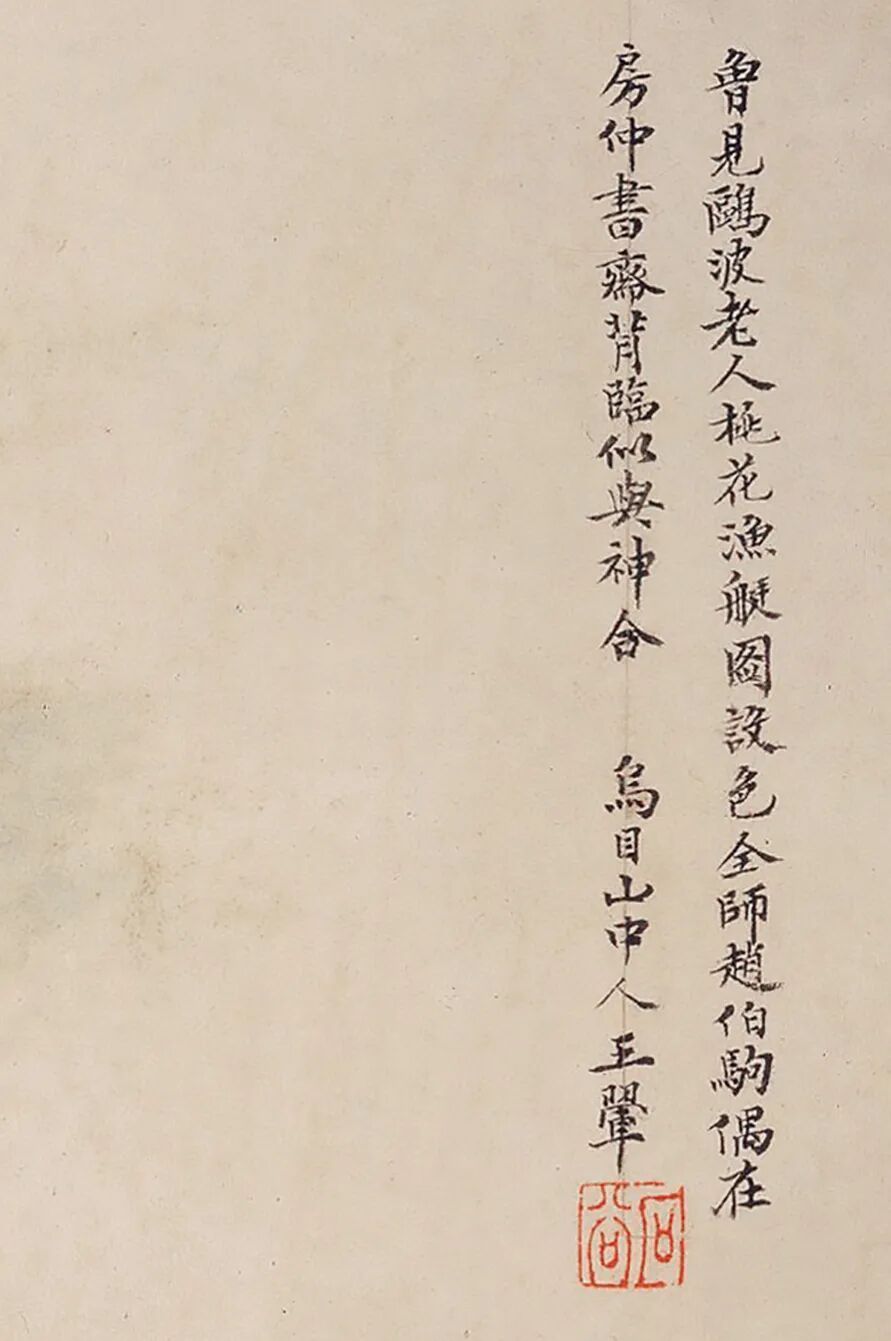 魯見鷗波老人桃花漁艇圖設色全師趙伯駒偶在
房仲書齋背臨似與神合 烏目山中人王翬
石谷